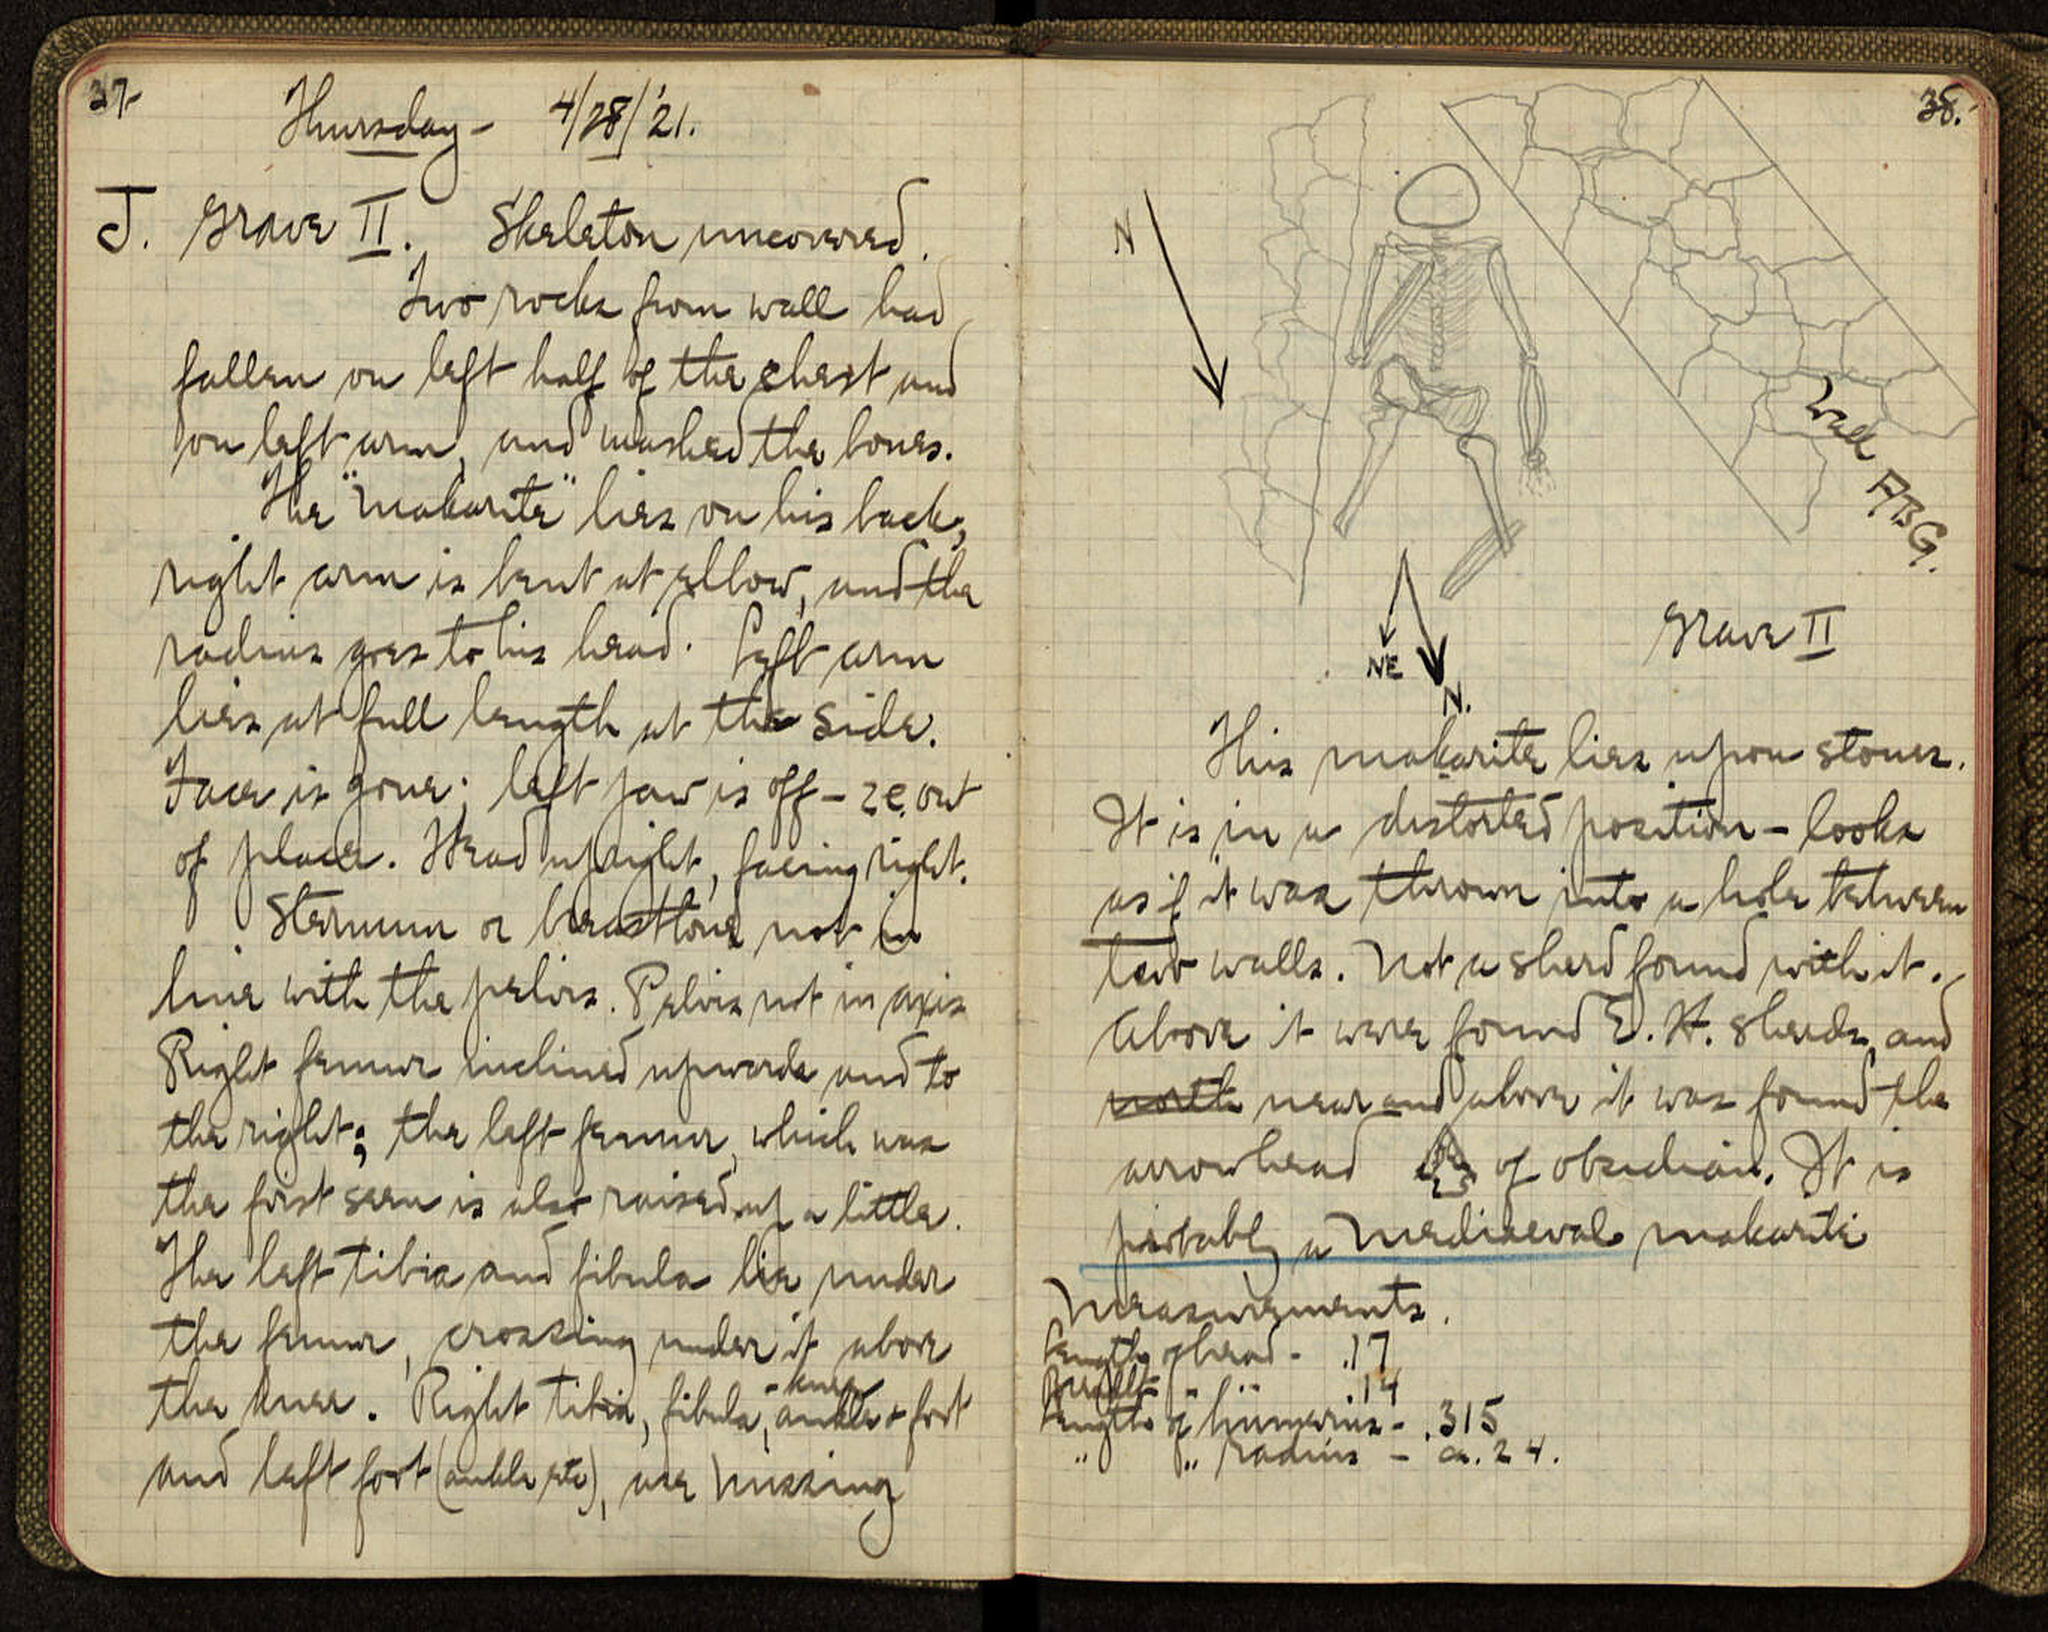 37-
Thursday - 4/28/'21.
J. Grave II. Skeleton uncovered.
Two rocks from wall had
fallen on left half of the chest and
on left arm, and mashed the bones.
The "makarite" lies on his back,
right arm is bent at elbow, and the
radius goes to his head. Left arm
lies at full length at the side.
Face is gone; left jaw is off - ie. out
of place. Head upright, facing right.
Sternum or breastbone not in
line with the pelvis. Pelvis not in axis
Right femur inclined upwards and to
the right; the left femur, which was
the first seen is also raised up a little.
The left tibia and fibula lie under
the femur, crossing under it above
- knee
the knee. Right tibia, fibula, ankle + foot
and left foot (ankle etc), are missing
38.
N
Wall ABG.
NE
N.
Grave II
This makarite lies upon stones.
It is in a distorted position - looks
as if it was thrown into a hole between
two walls. Not a sherd found with it.
Above it were found E. H. sherds, and
north near and above it was found the
arrowhead of obsidian. It is
probably a mediaeval makarite
Measurements.
Length of head - .17
Breadth " " .14
Length of humerus - .315
" " radius - ca. 24.